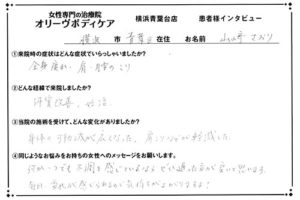 女性専門の治療院
オリーヴボディケア 横浜青葉台店 患者様インタビュー
横浜 市 青葉区 在住 お名前 さおり
①来院時の症状はどんな症状でいらっしゃいましたか?
全身疲れ、肩・腰のこり
②どんな経緯で来院しましたか?
体質改善、妊活
③当院の施術を受けて、どんな変化がありましたか?
身体の可動域が広くなった。肩こりなどが軽減した。
④同じようなお悩みをお持ちの女性へのメッセージをお願いします。
何か一つでも不調を感じているならぜひ通った方が良いと思います。
毎回、変化が感じられるので気持ちが上がりますよ!